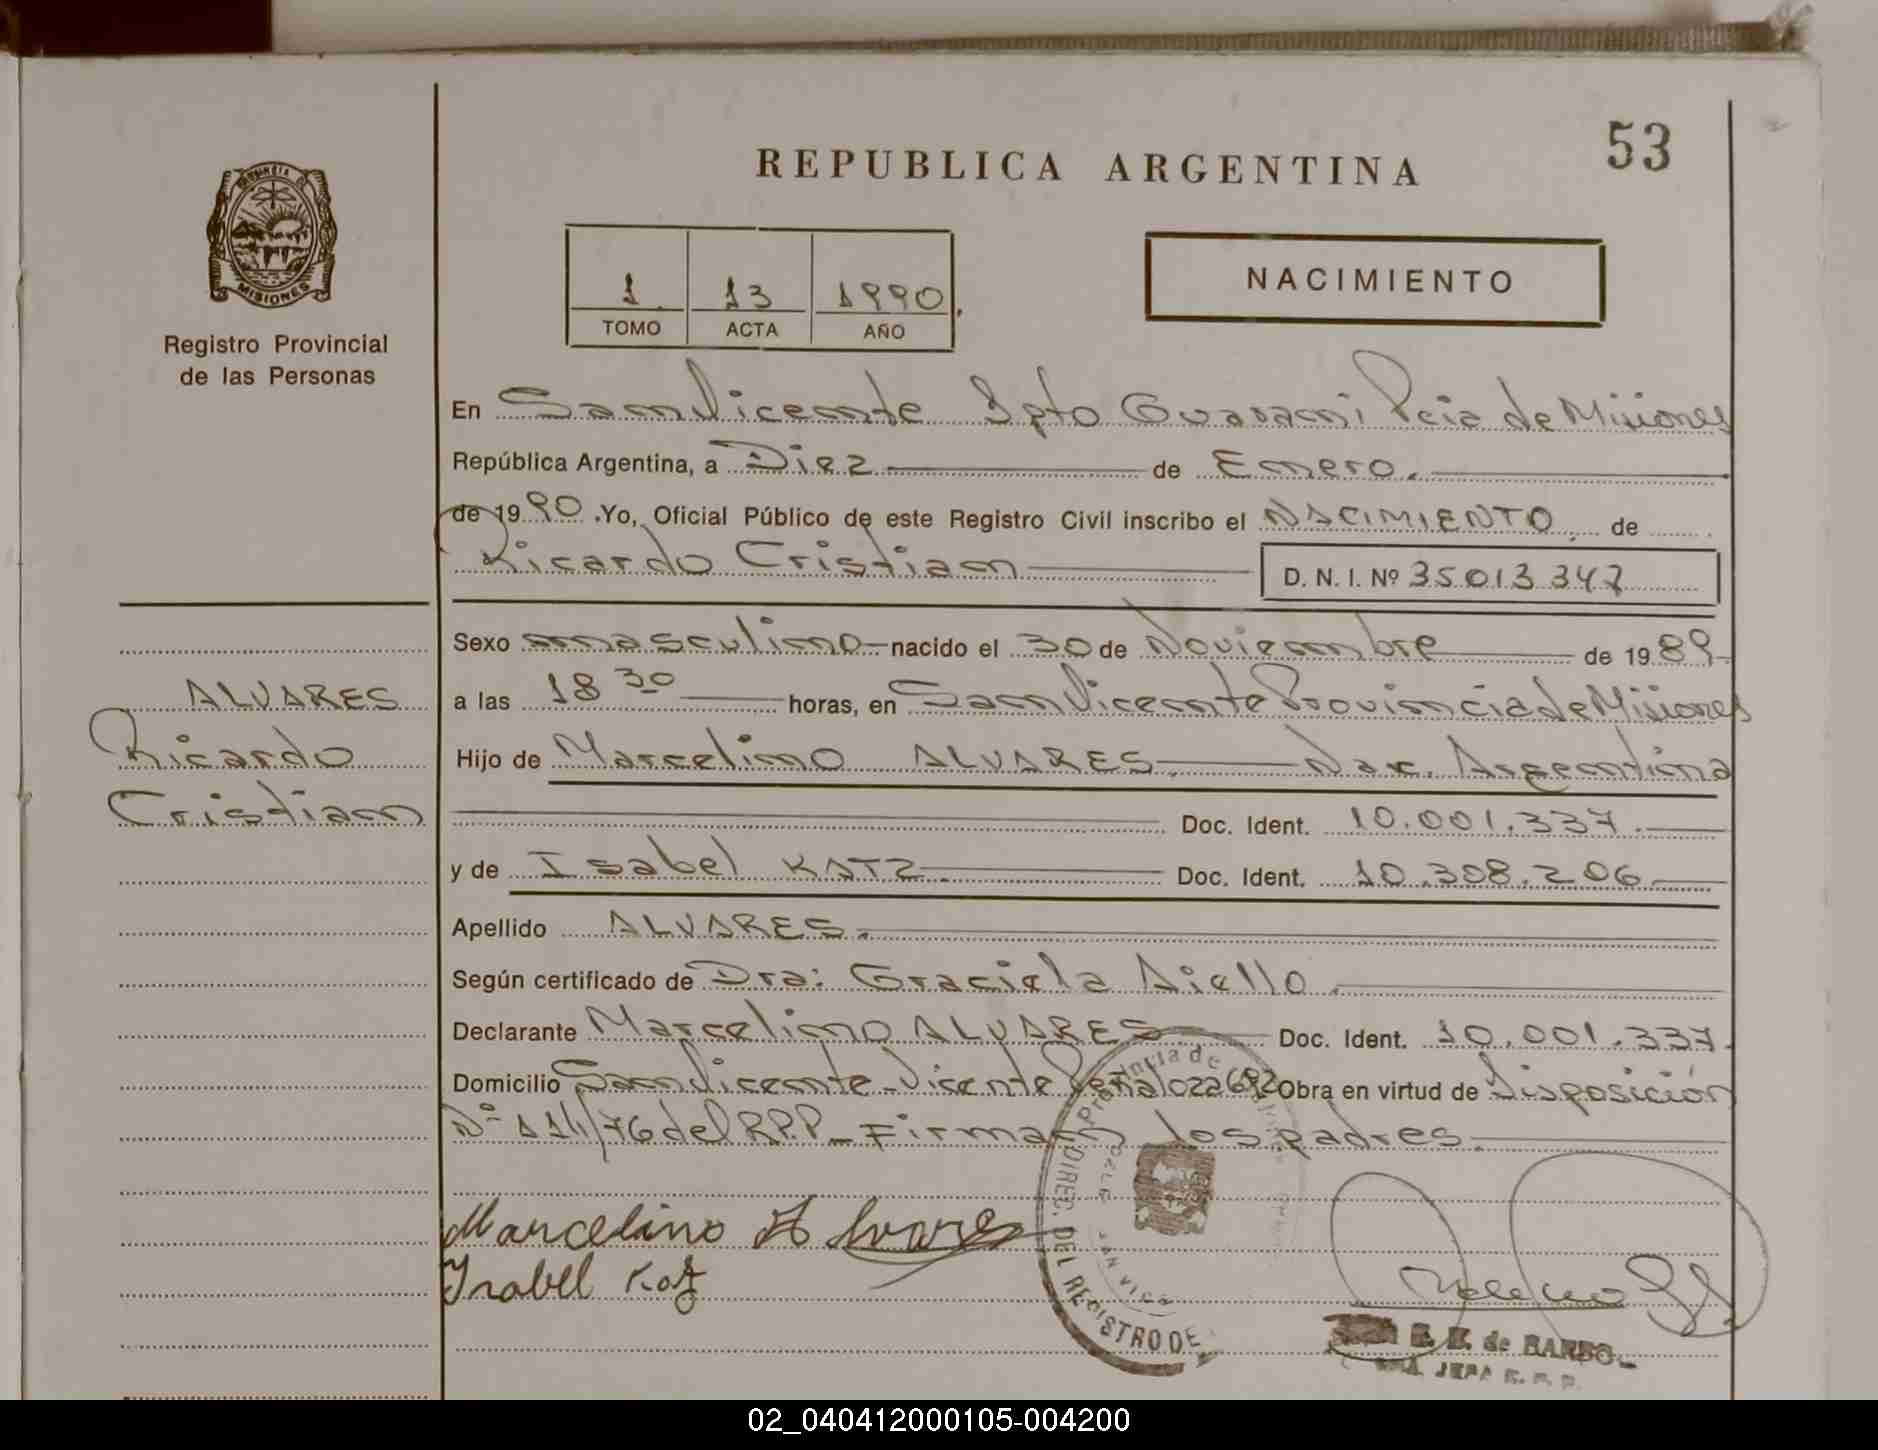 53
REPUBLICA ARGENTINA
PROVINCIA DE
MISIONES
Registro Provincial
de las Personas
1 13 1990
TOMO ACTA AÑO
NACIMIENTO
En San Vicente Dpto Guarani Pcia de Misiones
República Argentina, a Diez de Enero.
de 1990. Yo, Oficial Público de este Registro Civil inscribo el NACIMIENTO de
Ricardo Cristian D. N. I. Nº 35013347
Sexo masculino nacido el 30 de Noviembre de 1989
a las 18 30 horas, en San Vicente Provincia de Misiones
Hijo de Marcelino ALVARES. Nac. Argentina
Doc. Ident. 10.001.337.
y de Isabel KATZ. Doc. Ident. 10.308.206
Apellido ALVARES.
Según certificado de Dra: Graciela Aiello.
Declarante Marcelino ALVARES Doc. Ident. 10.001.337.
Domicilio San Vicente - Vicente Peñaloza 692 Obra en virtud de Disposición
Nº 114/76 del R.P.P - Firman los padres.
ALVARES
Ricardo
Cristian
Marcelino Alvares
Isabel Katz
Provincia de
DIREC. DEL REGISTRO DE
de BARBO
JEFA
02_040412000105-004200